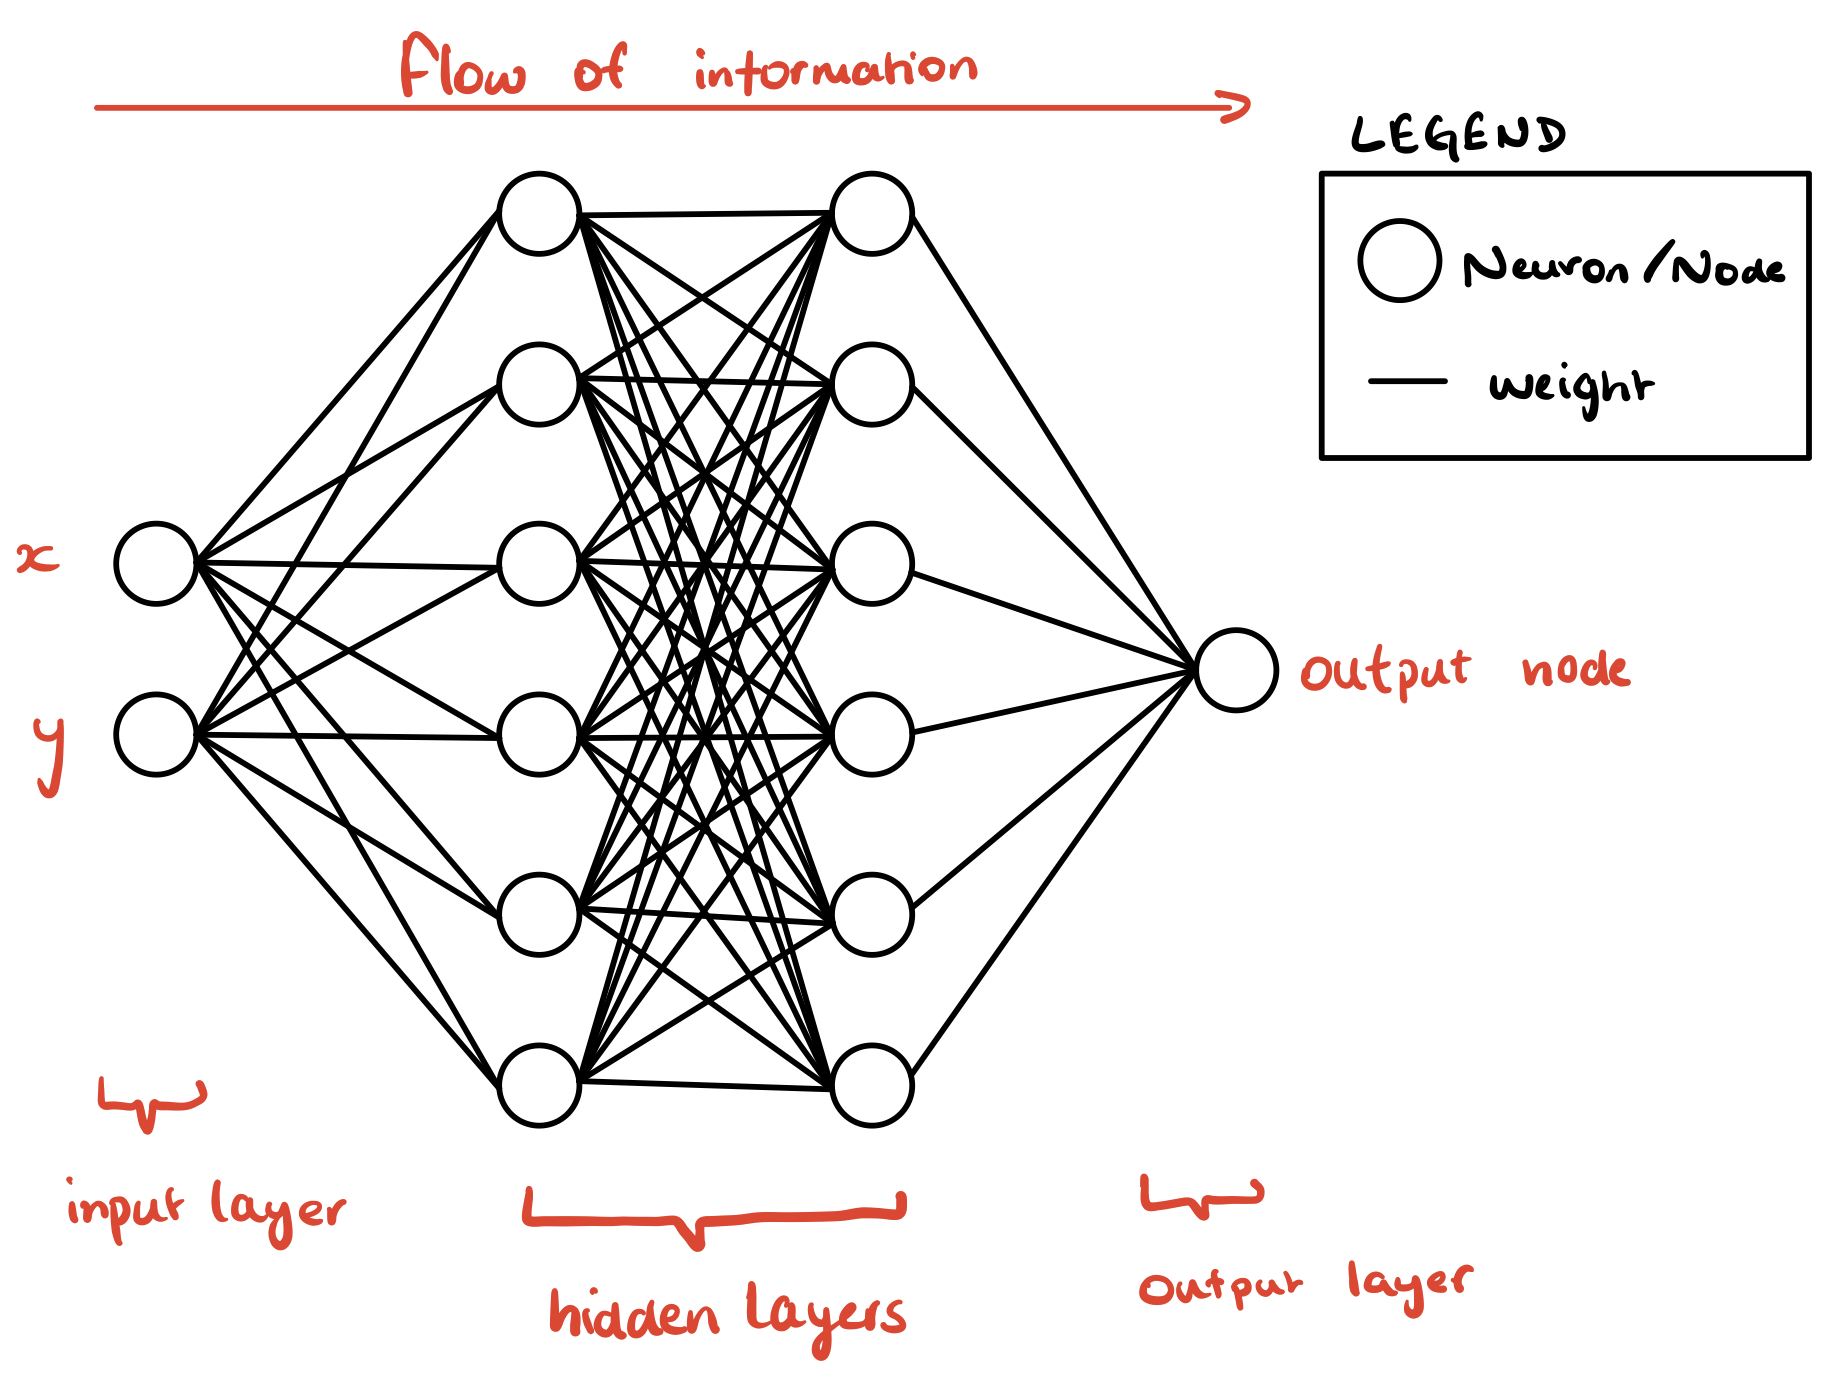 Flow of information
LEGEND
Neuron/Node
weight
x
y
output node
input layer
hidden layers
output layer